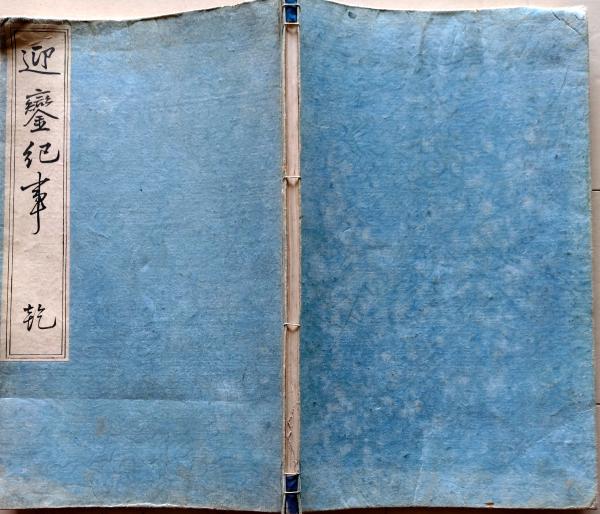 迎鑾紀事 乾